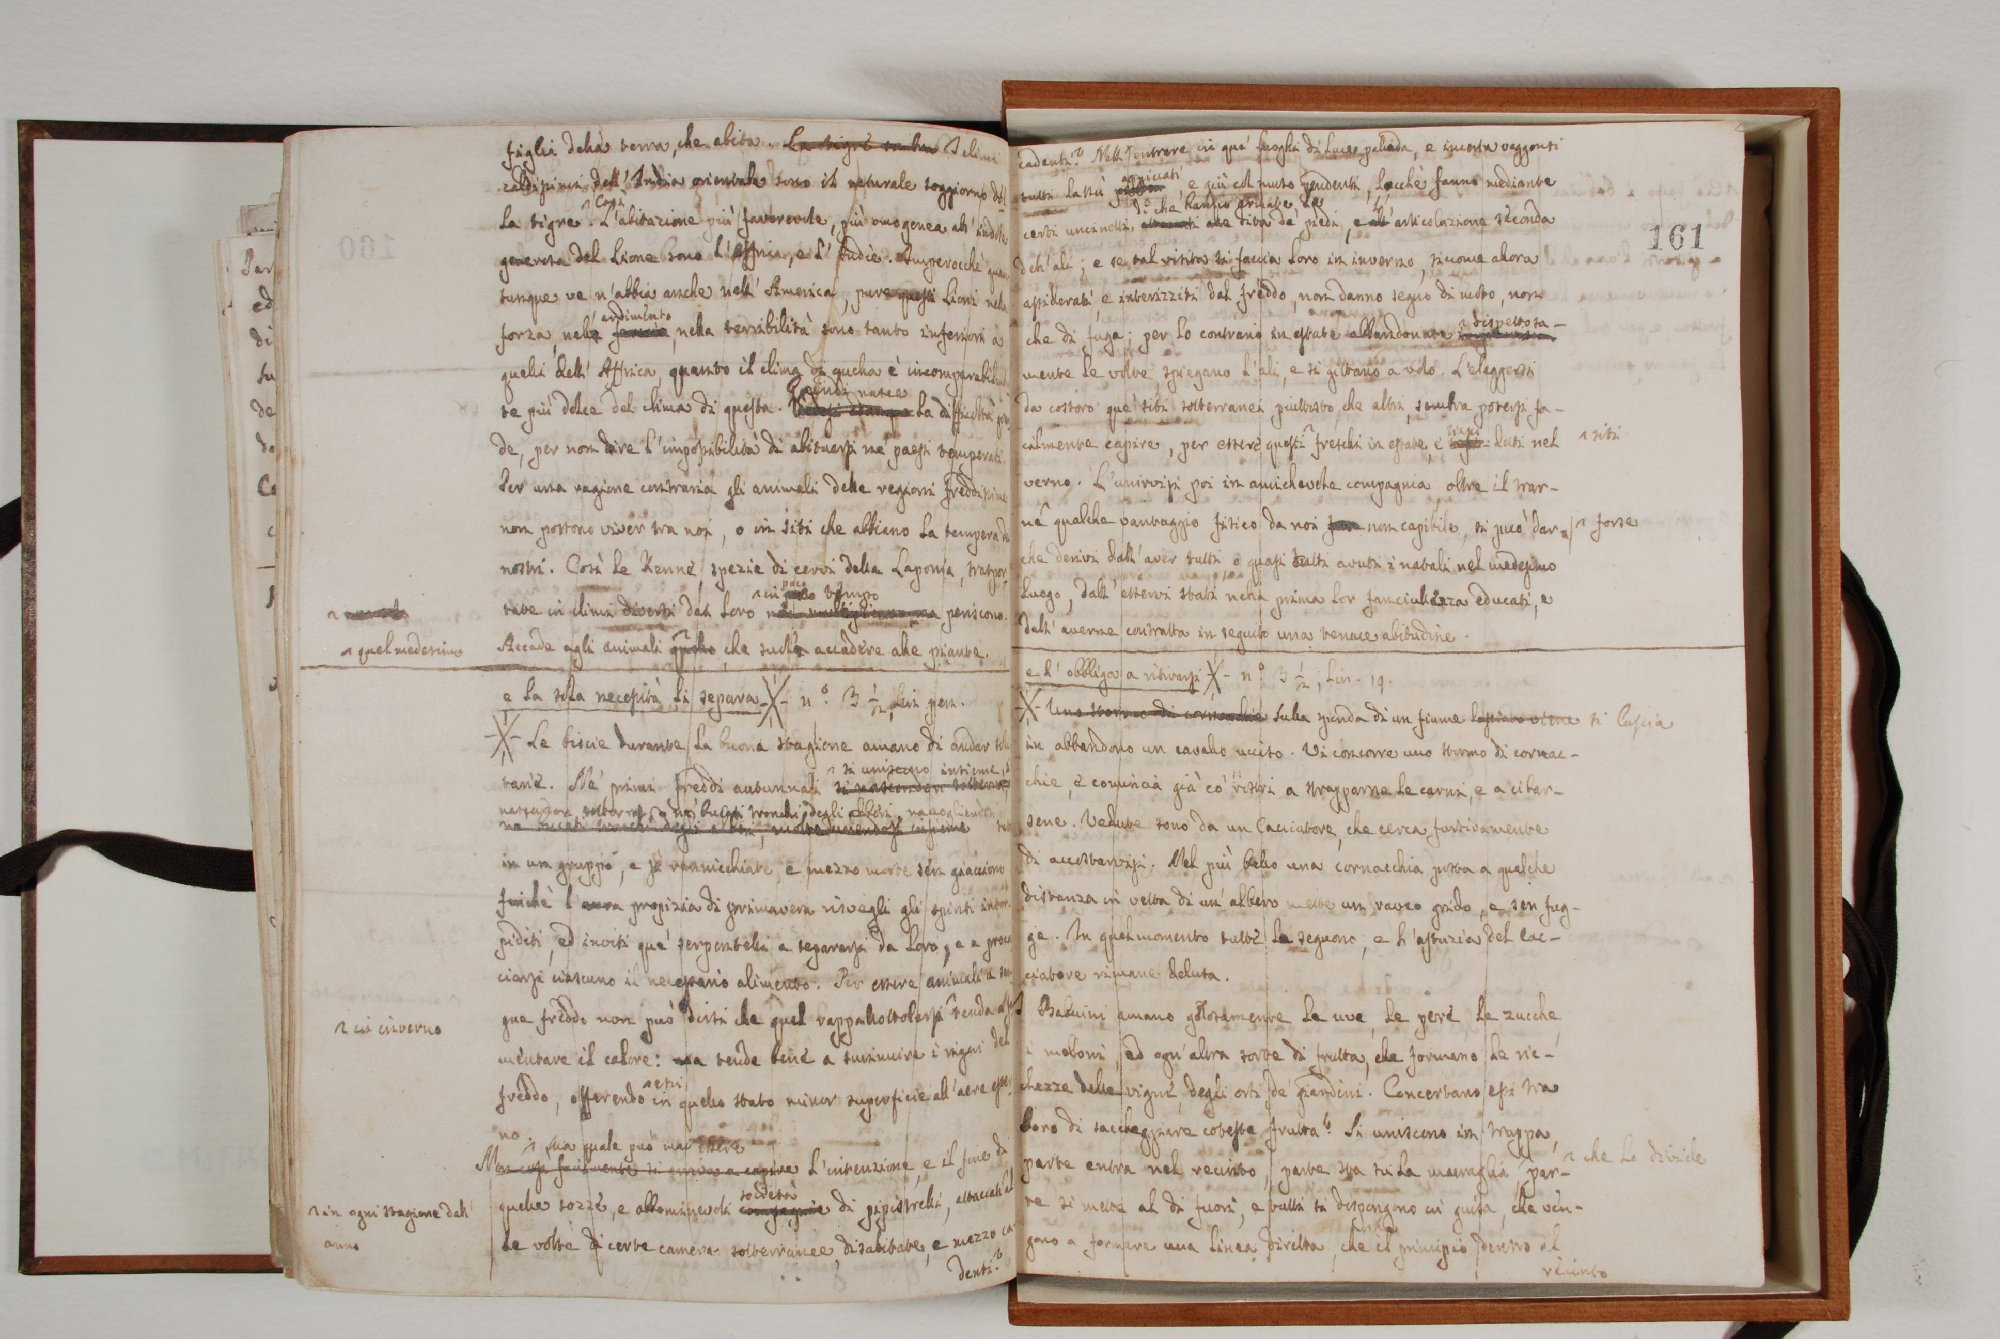 figlia della terra, che abita. La tigre I climi
caldissimi dell'India orientale sono il naturale soggiorno del-
la tigre. Così
L'abitazione più favorevole, più omogenea all'indole
generosa del Lione sono l'Affrica, e l'Indie. Imperocchè quan-
tunque ve n'abbia anche nell'America, pure questi Lioni nella
ardimento
forza, nell' , nella terribilità sono tanto inferiori a
quelli dell'Affrica, quanto il clima di quella è incomparabilmen
te più dolce del clima di questa. Quindi nasce la difficoltà
de, per non dire l'impossibilità di abituarsi ne' paesi temperati.
Per una ragione contraria gli animali delle regioni freddissime
non possono viver tra noi, o in siti che abbiano la tempera de
nostri. Così le Renne, spezie di cervi della Laponia, traspor
in poco tempo
tate in climi diversi dal loro periscono.
quel medesimo
Accade agli animali questo, che suole accadere alle piante.
e la sola necessità li separa -X- n.° 3 1/2, lin. pen.
-X- Le biscie durante la buona stagione amano di andar soli
si uniscono insieme, si
tarie. Ne' primi freddi autunnali si nascondon sotterra,
nascondon sotterra, o ne' bucati tronchi degli alberi, raccogliendosi
ne' bucati tronchi degli alberi, molte unendosi insieme
in un gruppo, e sì rannicchiate, e mezzo morte sen giacciono
finchè l'aura propizia di primavera risvegli gli spiriti intor
piditi, ed inviti que' serpentelli a separarsi da loro, e a procac
ciarsi ciascuno il necessario alimento. Per essere animali a san
in inverno
gue freddo non può dirsi che quel rappallottolarsi tenda ad au
mentare il calore: ma tende bene a sminuire i rigori del
essi
freddo, offerendo in quello stato minor superficie all'aere ester
no.
qua quale può mai essere
Ma così facilmente si arriva a capire l'intenzione, e il fine di
in ogni stagione dell'
anno
società
quelle sozze, e abbominevoli compagnie di pipistrelli, attaccati al
le volte di certe camere sotterranee, disabitate, e mezzo ca
denti.
161
cadenti? Nell'entrare in que' luoghi di luce pallida, e incerta veggonsi
appiccati
tutti lassù , e giù col muso pendenti, locchè fanno mediante
di che hanno armate le
certi uncinetti, dita de' piedi, e l'articolazione seconda
dell'ali; e se tal visita si faccia loro in inverno, siccome allora
assiderati, e intirizziti dal freddo, non danno segno di moto, non
che di fuga; per lo contrario in estate abbandonate dispettosa-
mente le volte, spiegano l'ali, e si gittano a volo. L'eleggersi
da costoro que' siti sotterranei piuttosto, che altri, sembra potersi fa-
siti
cilmente capire, per essere questi freschi in estate, e tiepidetti nel
verno. L'unirvisi poi in amichevole compagnia, oltre il trar-
forse
ne qualche vantaggio fisico da noi non capibile, si può dar
che derivi dall'aver tutti, o quasi tutti avuti i natali nel medesimo
luogo, dall'essersi stati nella prima lor fanciullezza educati, e
dall'averne contratta in seguito una tenace abitudine.
e l'obbliga a ritirarsi -X- n.° 3 1/2, lin. 19.
-X- Uno stormo di cornacchie Sulla sponda di un fiume lasciato viene si lascia
in abbandono un cavallo ucciso. Vi concorre uno stormo di cornac-
chie, e comincia già co' rostri a strapparne le carni, e a cibar-
sene. Vedute sono da un Cacciatore, che cerca furtivamente
di accostarvisi. Nel più bello una cornacchia posta a qualche
distanza in vetta di un'albero mette un rauco grido, e sen fug-
ge. In quel momento tutte le seguono, e l'astuzia del cac-
ciatore rimane delusa.
I Babuini amano golosamente le uve, le pere, le zucche,
i meloni, ed ogn'altra sorte di frutta, che formano le ric-
chezze delle vigne, degli orti, de' giardini. Concertano essi tra
loro di saccheggiare coteste frutta. Si uniscono in truppa,
che lo divide
parte entra nel recinto, parte sta sulla muraglia, par-
te si mette al di fuori, e tutti si dispongono in guisa, che ven-
gono a formare una linea diretta, che principio dentro al
recinto